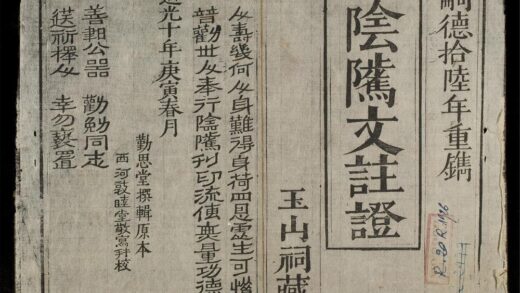 嗣德拾陸年重鐫
陰騭文註證
玉山祠藏
人壽幾何人身難得身荷四恩虛生可惜
普勸世人奉行陰騭刊印流傳無量功德
道光十年庚寅春月
勤思堂撰輯原本
西河敦睦堂敬寫刊校
善書公器 勸勉同志
送祈擇人 幸勿褻置